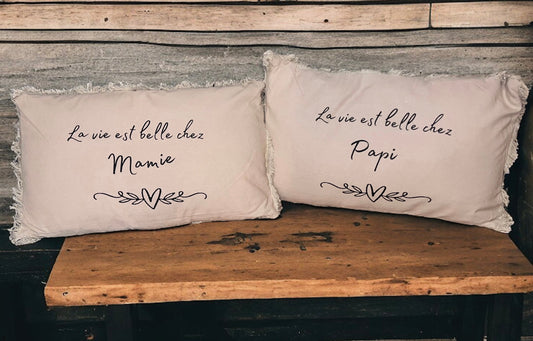 La vie est belle chez
Mamie
La vie est belle chez
Papi